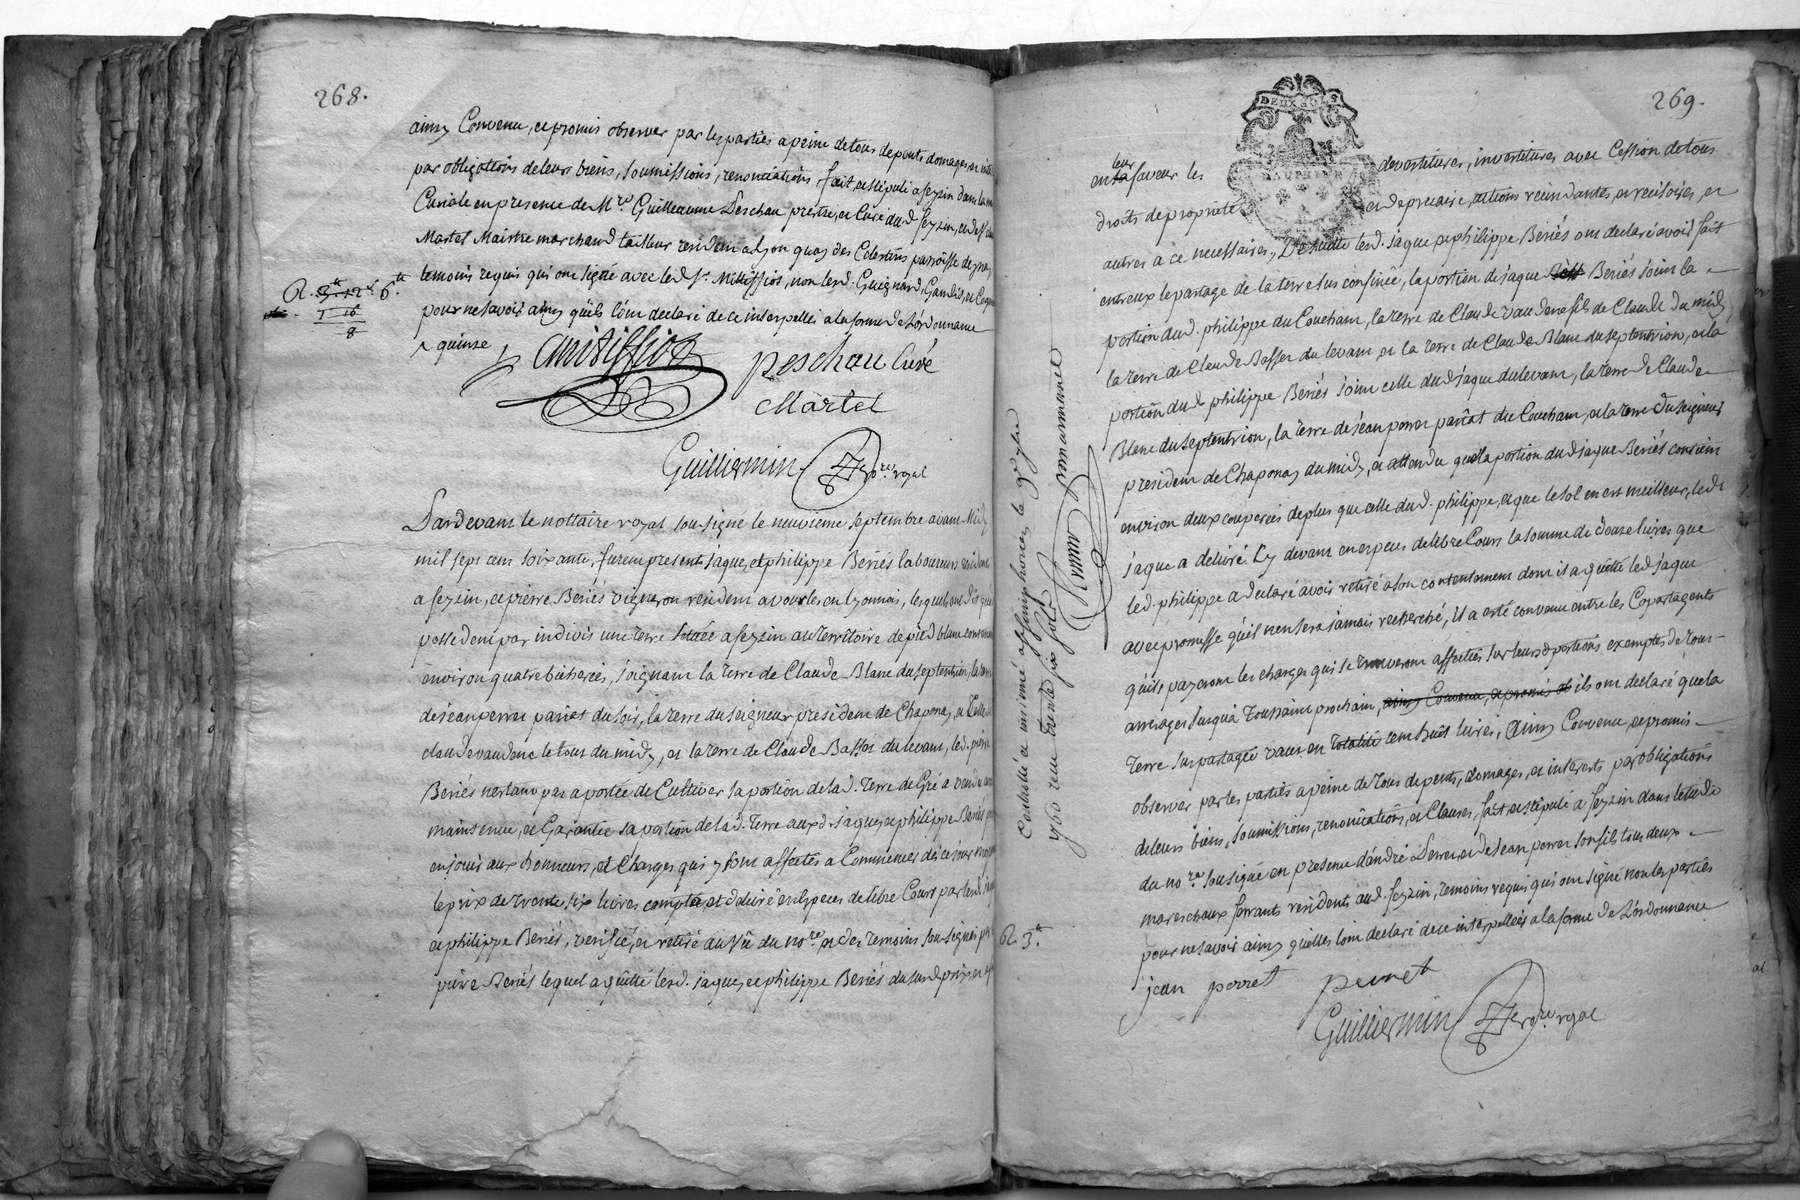 268.
ainsy Convenu, et promis observer par les parties a peine de tous depents domages et
par obligations de leurs biens, soumissions, renonciations fait, et stipulé a feyzin dans la
Curiale en presence de Mre. Guilleaume Deschau prestre, et Curé dud. feyzin, et de
Martel Maistre marchand tailleur resident a Lyon quay des Celestins parroisse de
temoins requis qui ont signé avec led. Sr. Millission, non led. Guignard, Gandis, et
pour ne savoir ainsy qu'ils l'ont declaré de ce interpellés a la forme de L'ordonnance
R. 3.tt 12s. 6.tt
1 16
8
quinse
Deschau Curé
Martel
Guilliermin Nore. royal
Pardevant le nottaire royal sousigné le neuvieme septembre avant Midy
mil sept cent soixante, furent present Jaque, et philippe Beriés laboureurs residents
a feyzin, et pierre Beriés vigneron resident a vourles en Lyonnais, lesquels ont dit que
possedent par indivis une terre située a feyzin au territoire de pied blanc contenant
environ quatre bicherées, joignant la terre de Claude Blanc du septentrion, la terre
de Jean perret pariat du soir, la terre du seigneur president de Chaponay, et celle de
claude vaudene le tout du midy, et la terre de Claude Basset du levant, led. pierre
Beriés n'estant pas a portée de Cultiver sa portion de lad. terre de Gré a vendu
maintenue, et Garantie sa portion de lad. terre auxd. Jaque, et philippe Beriés pour
en jouir aux honneurs, et Charges qui y sont affectés a Commencer dès ce jour moyennant
le prix de trente six livres compté, et delivré en Especes de libre Cours par lesd. Jaque
et philippe Beriés, verifié, et retiré au vû du nore., et des temoins sousignés par
pierre Beriés lequel a quitté lesd. Jaque, et philippe Beriés dususd. prix, et
269.
DEUX SOLS
DAUPHINE
leur
en sa faveur les devestitures, investitures avec Cession de tous
droits de proprieté et de precaire, actions recindantes, et recisoires, et
autres a ce necessaires, De suitte lesd. Jaque et philippe Beriés ont declaré avoir fait
entreux le partage de la terre sus confinée, la portion de Jaque Beriés joint la
portion dud. philippe du Couchant, la terre de Claude vaudene fils de Claude du midy
la terre de Claude Basset du levant, et la terre de Claude Blanc du septentrion, et la
portion dud. philippe Beriés joint celle dud. Jaque du levant, la terre de Claude
Blanc du septentrion, la terre de Jean perret pariat du Couchant, et la terre du seigneur
president de Chaponay du midy, et attendu que la portion dud. Jaque Beriés contient
environ deux couperées de plus que celle dud. philippe, et que le sol en est meilleur, led.
Jaque a delivré Cy devant en especes de libre Cours la somme de douze livres que
led. philippe a declaré avoir retiré a son contentement dont il a quitté led. Jaque
avec promesse qu'il n'en sera jamais recherché, il a esté convenu entre les Copartageants
qu'ils payeront les charges qui se trouveront affectées sur leursd. portions exemptes de tous
arrerages jusqu'a Toussaint prochain, ainsy Convenu, et promis ob ils ont declaré que la
terre sus partagée vaut en totalité cent huit livres, Ainsy Convenu, et promis
observer par les parties a peine de tous depents, domages, et interets par obligations
de leurs biens, soumissions, renonciations, et Clauses, fait, et stipulé a feyzin dans l'etude
du nore. sousigné en presence d'andré perret, et de Jean perret son fils tous deux
mareschaux ferrants residents aud. feyzin, temoins requis qui ont signé non les parties
pour ne savoir ainsy qu'elles l'ont declaré de ce interpellées a la forme de L'ordonnance
R. 3.tt
jean perret perret
Guilliermin Nore. royal
Controllé et insinué a St Simphorien le 9e 7bre
1760 reçu trente six sols